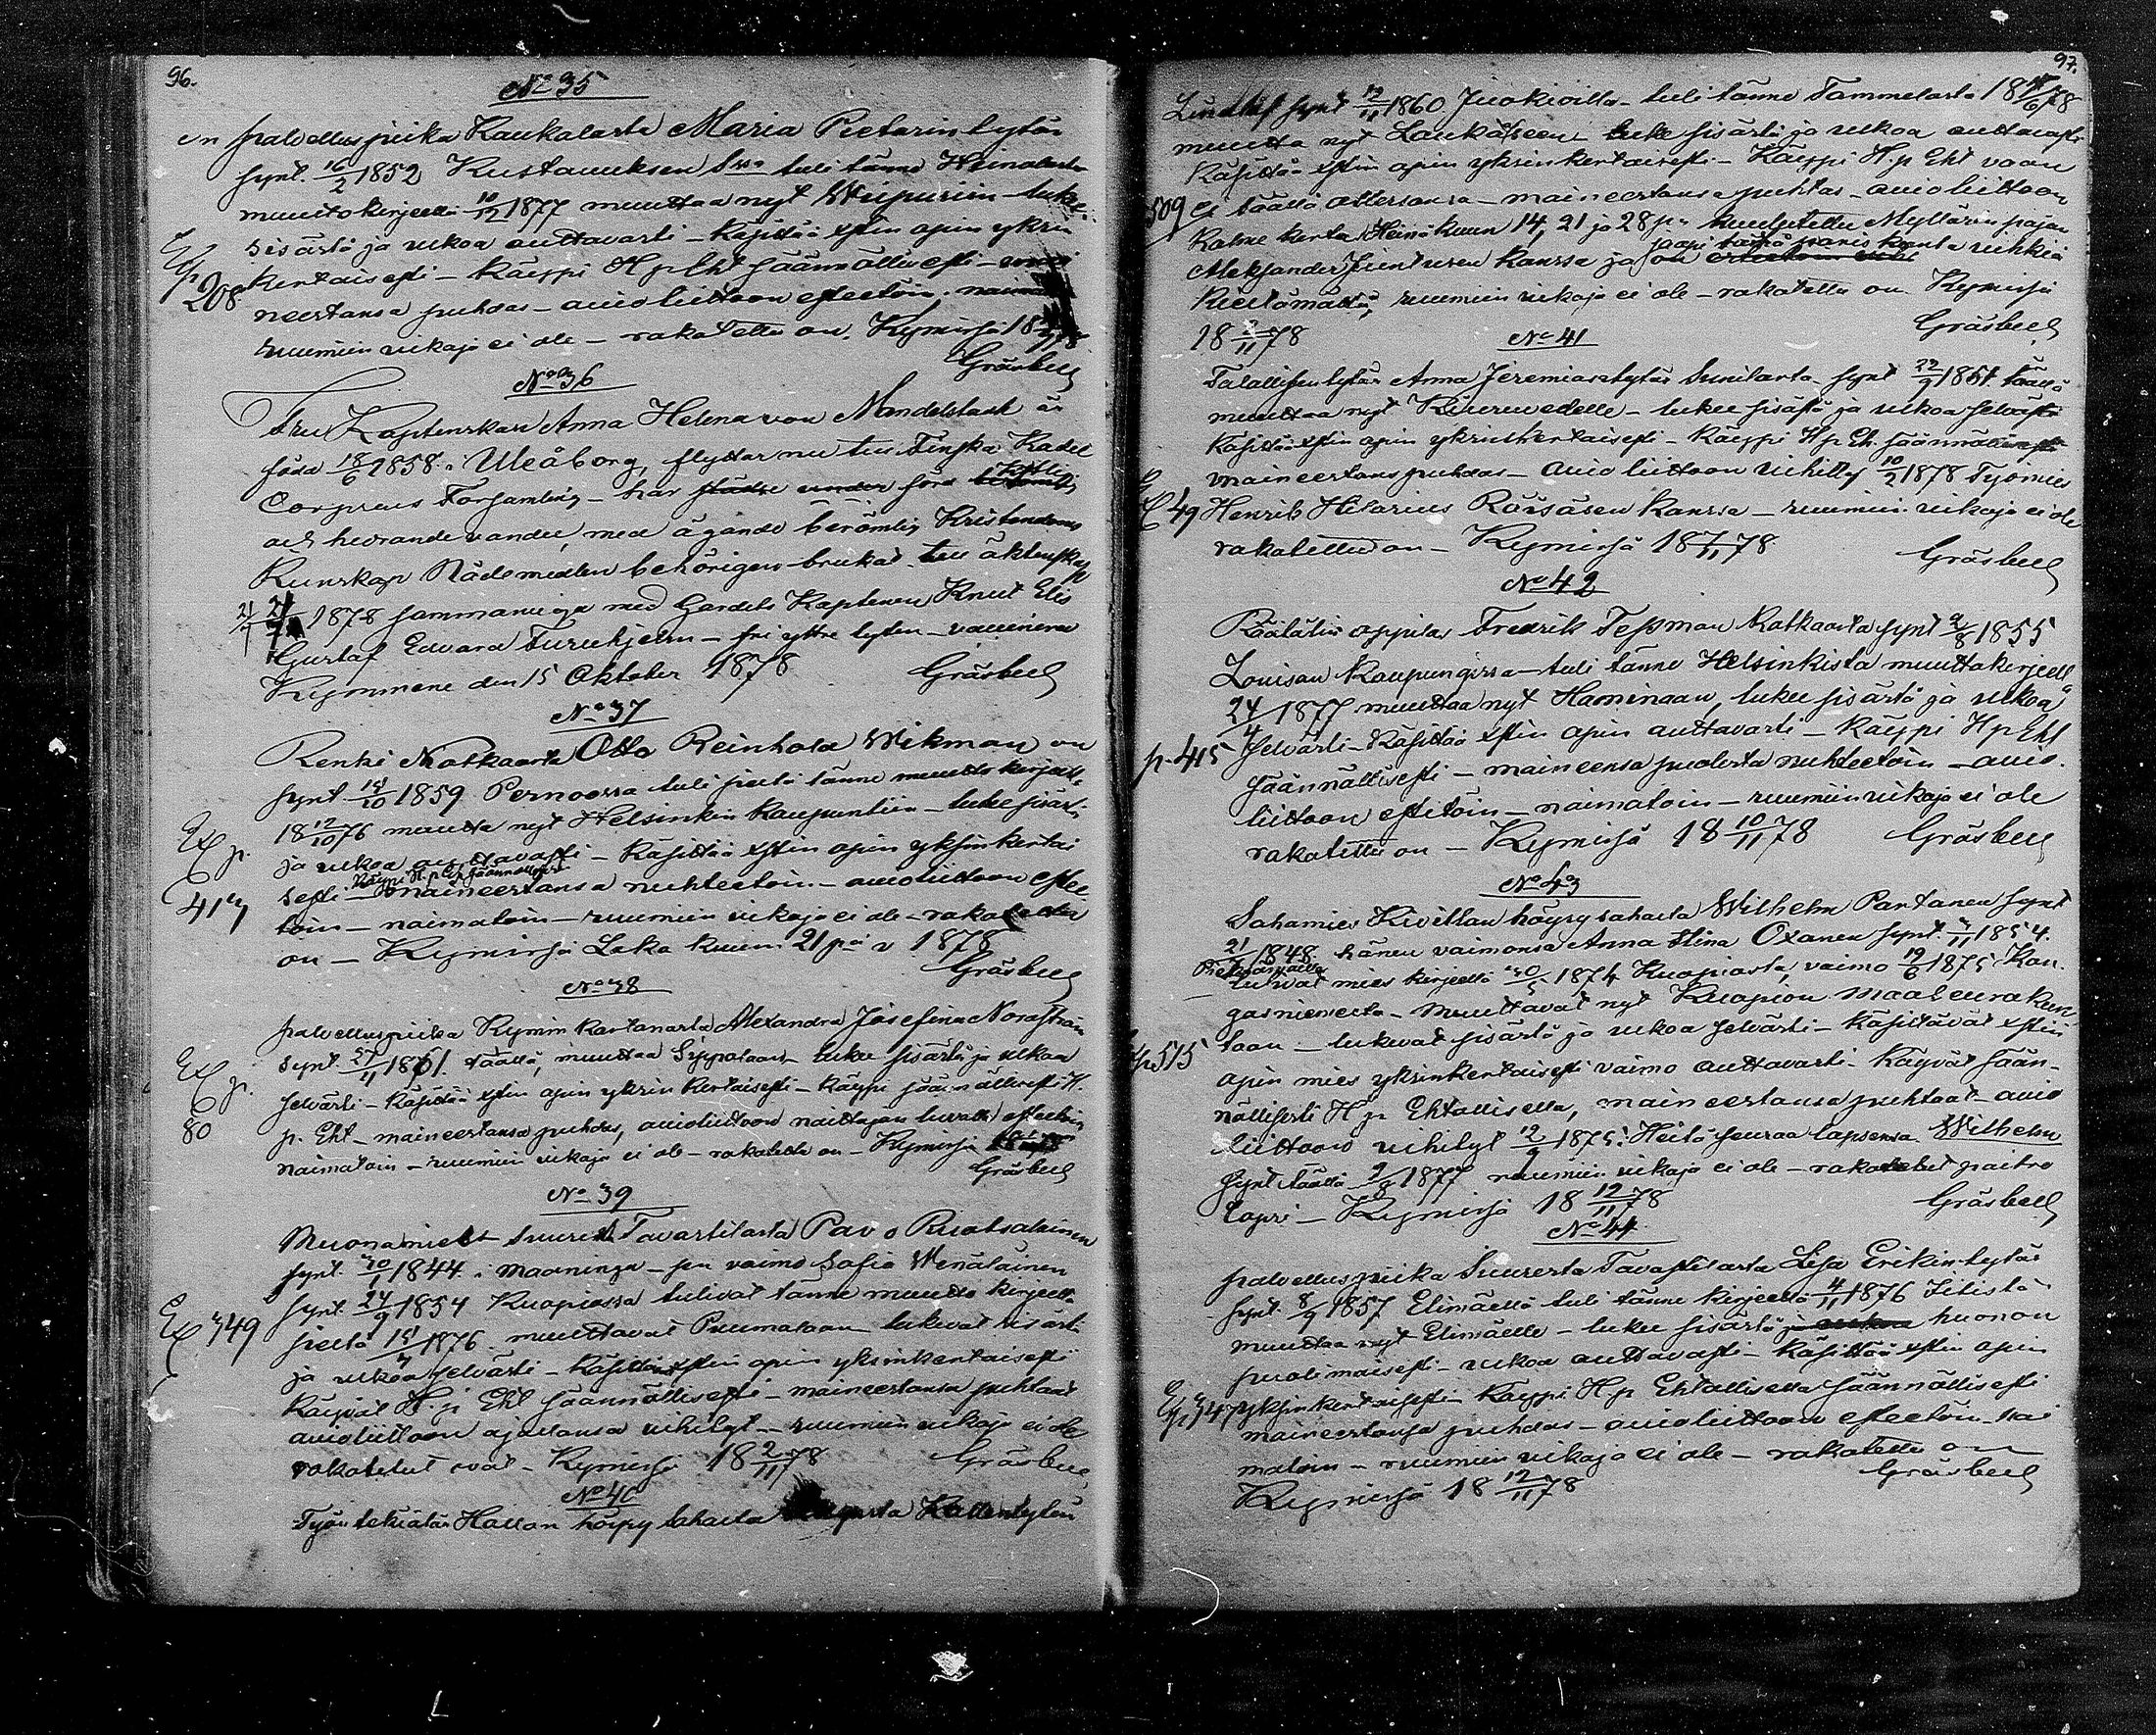 96.
No 35
en palvelluspiika Kaukalasta Maria Pietarin tytär
synt. 16/2 1852 Kustauuksen tuli tänne Heinolasta
muuttokirjeellä 10/12 1877 muuttaa nyt Wiipuriin – lukee
sisältä ja ulkoa auttavasti – Käsittää xstin opin yksin
Ex p. 208
kertaisesti – käypi H p Eht säännöllisesti – mai
neestansa puhdas – avioliittoon esteetöin
ruumiin vikaja ei ole – rokotettu on. Kymissä 18 78
Gräsbeck
No 36
Fru Kaptenskan Anna Helena von Mandelstadt är
född 18/6 1858 i Uleåborg, flyttar nu till Finska Kadett
Corpsens Församling – har
och hedrande vandel, med ägande berömlig Kristendoms
Kunskap Nådemedlen behörigen brukat – till äktenskap
21/7 1878 sammanvigd med Gardets Kaptenen Knut Elis
Gustaf Edvard Furuhjelm – fri yttre lyten – vaccinerad
Kymmene den 15 Oktober 1878 Gräsbeck
No 37
Renki Kotkasta Otto Reinhold Wikman on
synt. 14/10 1859 Pernoossa tuli sieltä tänne muuttokirjeellä
18 12/10 76 muutta nyt Helsinkin Kaupunkiin – lukee sisält.
Ex p. 417
ja ulkoa auttavasti – Käsittää xstin opin yksinkertai
Käypi H. p. Eht säännöllisesti
sesti – maineestansa nuhteetoin – avioliittoon estee
töin – naimatoin – ruumiin vikaja ei ole – rokotettu
on – Kymissä Loka kuun 21 p:ä v 1878
Gräsbeck
No 38
palvelluspiika Kymin kartanosta Alexandra Josefina Nordström
synt. 27/4 1861. täällä, muuttaa Sippolaan – lukee sisältä ja ulkoa
Ex p. 80
selvästi – Käsittää xstin opin yksin kertaisesti – käypi säännöllisesti H.
p. Eht – maineestansa puhdas, avioliittoon naittajan luvalla esteetöin
naimatoin – ruumiin vikaja ei ole – rokotettu on – Kymissä
Gräsbeck
No 39
Muonamies Suuresta Tavastilasta Pavo Ruotsalainen
synt. 30/1 1844 i Maaninga – sen vaimo Sofia Wenäläinen
Ex 349
synt. 24/9 1854 Kuopiossa tulivat tänne muutto kirjeellä
sieltä 1876 muuttavat Puumalaan – lukevat sisält.
ja ulkoa selvästi – Käsittää xstin opin yksinkertaisesti
Käyvät H. p Eht säännöllisesti – maineestansa puhtaat
avioliittoon ajallansa vihityt – ruumiin vikaja ei ole
rokotetut ovat – Kymissä 18 2/11 78 Gräsbeck
No 40
Työn tekiätär Hallan höyry sahalta Kallentytär
97.
Lindlöf synt 12/11 1860 Juokioilla – tuli tänne Tammelasta 18 78
muutta nyt Laukaaseen – lukee sisältä ja ulkoa auttavasti
Käsittää xstin opin yksinkertaisesti – Käypi H. p Eht vaan
509
ei täällä ollessansa – maineestansa puhdas – avioliittoon
Kolme kerta Heinäkuun 14, 21 ja 28 p:ä kuulutettu Myllärin pojan
Aleksander Juntusen kanssa ja on
kieltämättä, ruumiin vikaja ei ole – rokotettu on Kymissä
18 2/11 78 Gräsbeck
No 41
Talollisen tytär Anna Jeremiaantytär Sunilasta synt 22/9 1851 täällä
muuttaa nyt Kiuruvedelle – lukee sisältä ja ulkoa selvästi
Käsittää xstin opin yksinkertaisesti – Käypi H p Eh. säännöllisesti
maineestans puhdas – avioliittoon vihitty 10/2 1878 Työmies
49
Henrik Hilarius Räsäsen kanssa – ruumiin vikaja ei ole
rokotettu on – Kymissä 18 7/11 78 Gräsbeck
No 42
Räätälin oppilas Fredrik Tessman Kotkasta synt 2/8 1855
Louisan kaupungissa – tuli tänne Helsinkista muuttokirjeell
24/4 1877 muuttaa nyt Haminaan, lukee sisältä ja ulkoa
p. 415
selvästi – Käsittää xstin opin auttavasti – Käypi H p Eht
säännöllisesti – maineensa puolesta nuhteetoin – avio
liittoon estetöin – naimatoin – ruumiin vikaja ei ole
rokotettu on – Kymissä 18 10/11 78 Gräsbeck
No 43
Sahamies Kiviltan höyry sahasta Wilhelm Partanen synt
21/ 1848 hänen vaimonsa Anna Stina Oxanen synt. /11 1854.
tulivat mies kirjeellä 30/5 1874 Kuopiosta, vaimo 19/6 1875 Kan-
gasniemeltä – Muuttavat nyt Kuopion Maaseurakun
p 515
taan – lukevat sisältä ja ulkoa selvästi – Käsittävät xstin
opin mies yksinkertaisesti vaimo auttavasti – Käyvät sään-
nöllisesti H. p. Ehtollisella, maineestansa puhtaat – avio
liittoon vihityt 12/9 1875. Heitä seuraa lapsensa Wilhelm
synt täällä 1877 ruumiin vikaja ei ole – rokotetut paitsi
lapsi – Kymissä 18 12/11 78 Gräsbeck
No 44.
palvelluspiika Suuresta Tavastilasta Lisa Erikintytär
synt. 8/9 1857 Elimäellä tuli tänne kirjeellä 4/11 1876 Iitistä
muuttaa nyt Elimäelle – lukee sisältä huonon
puolimaisesti – ulkoa auttavasti – Käsittää xstin opin
p 347
yksinkertaisesti – Käypi H. p Ehtollisella säännöllisesti
maineestansa puhdas – avioliittoon esteetön – nai
matoin – ruumiin vikaja ei ole – rokotettu on
Kymissä 18 12/11 78 Gräsbeck